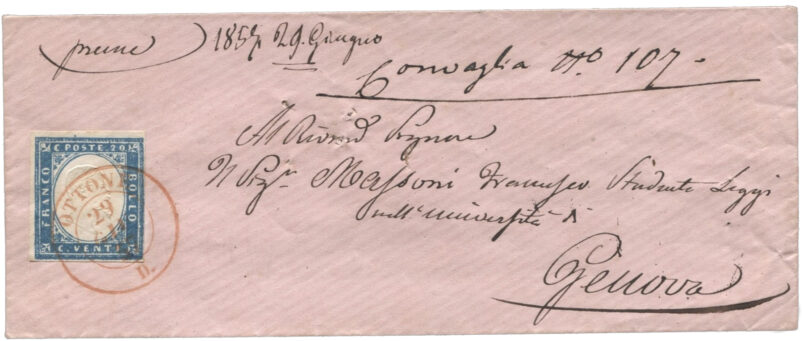 1857 29. Giugno
Corvaglia No 107 -
Al Rivmd Signore
Il Sigr Massoni Francesco Studente Leggi
nell'università di
Genova
C. POSTE 20.
FRANCO
BOLLO
C. VENTI
OTTONE
29
D.